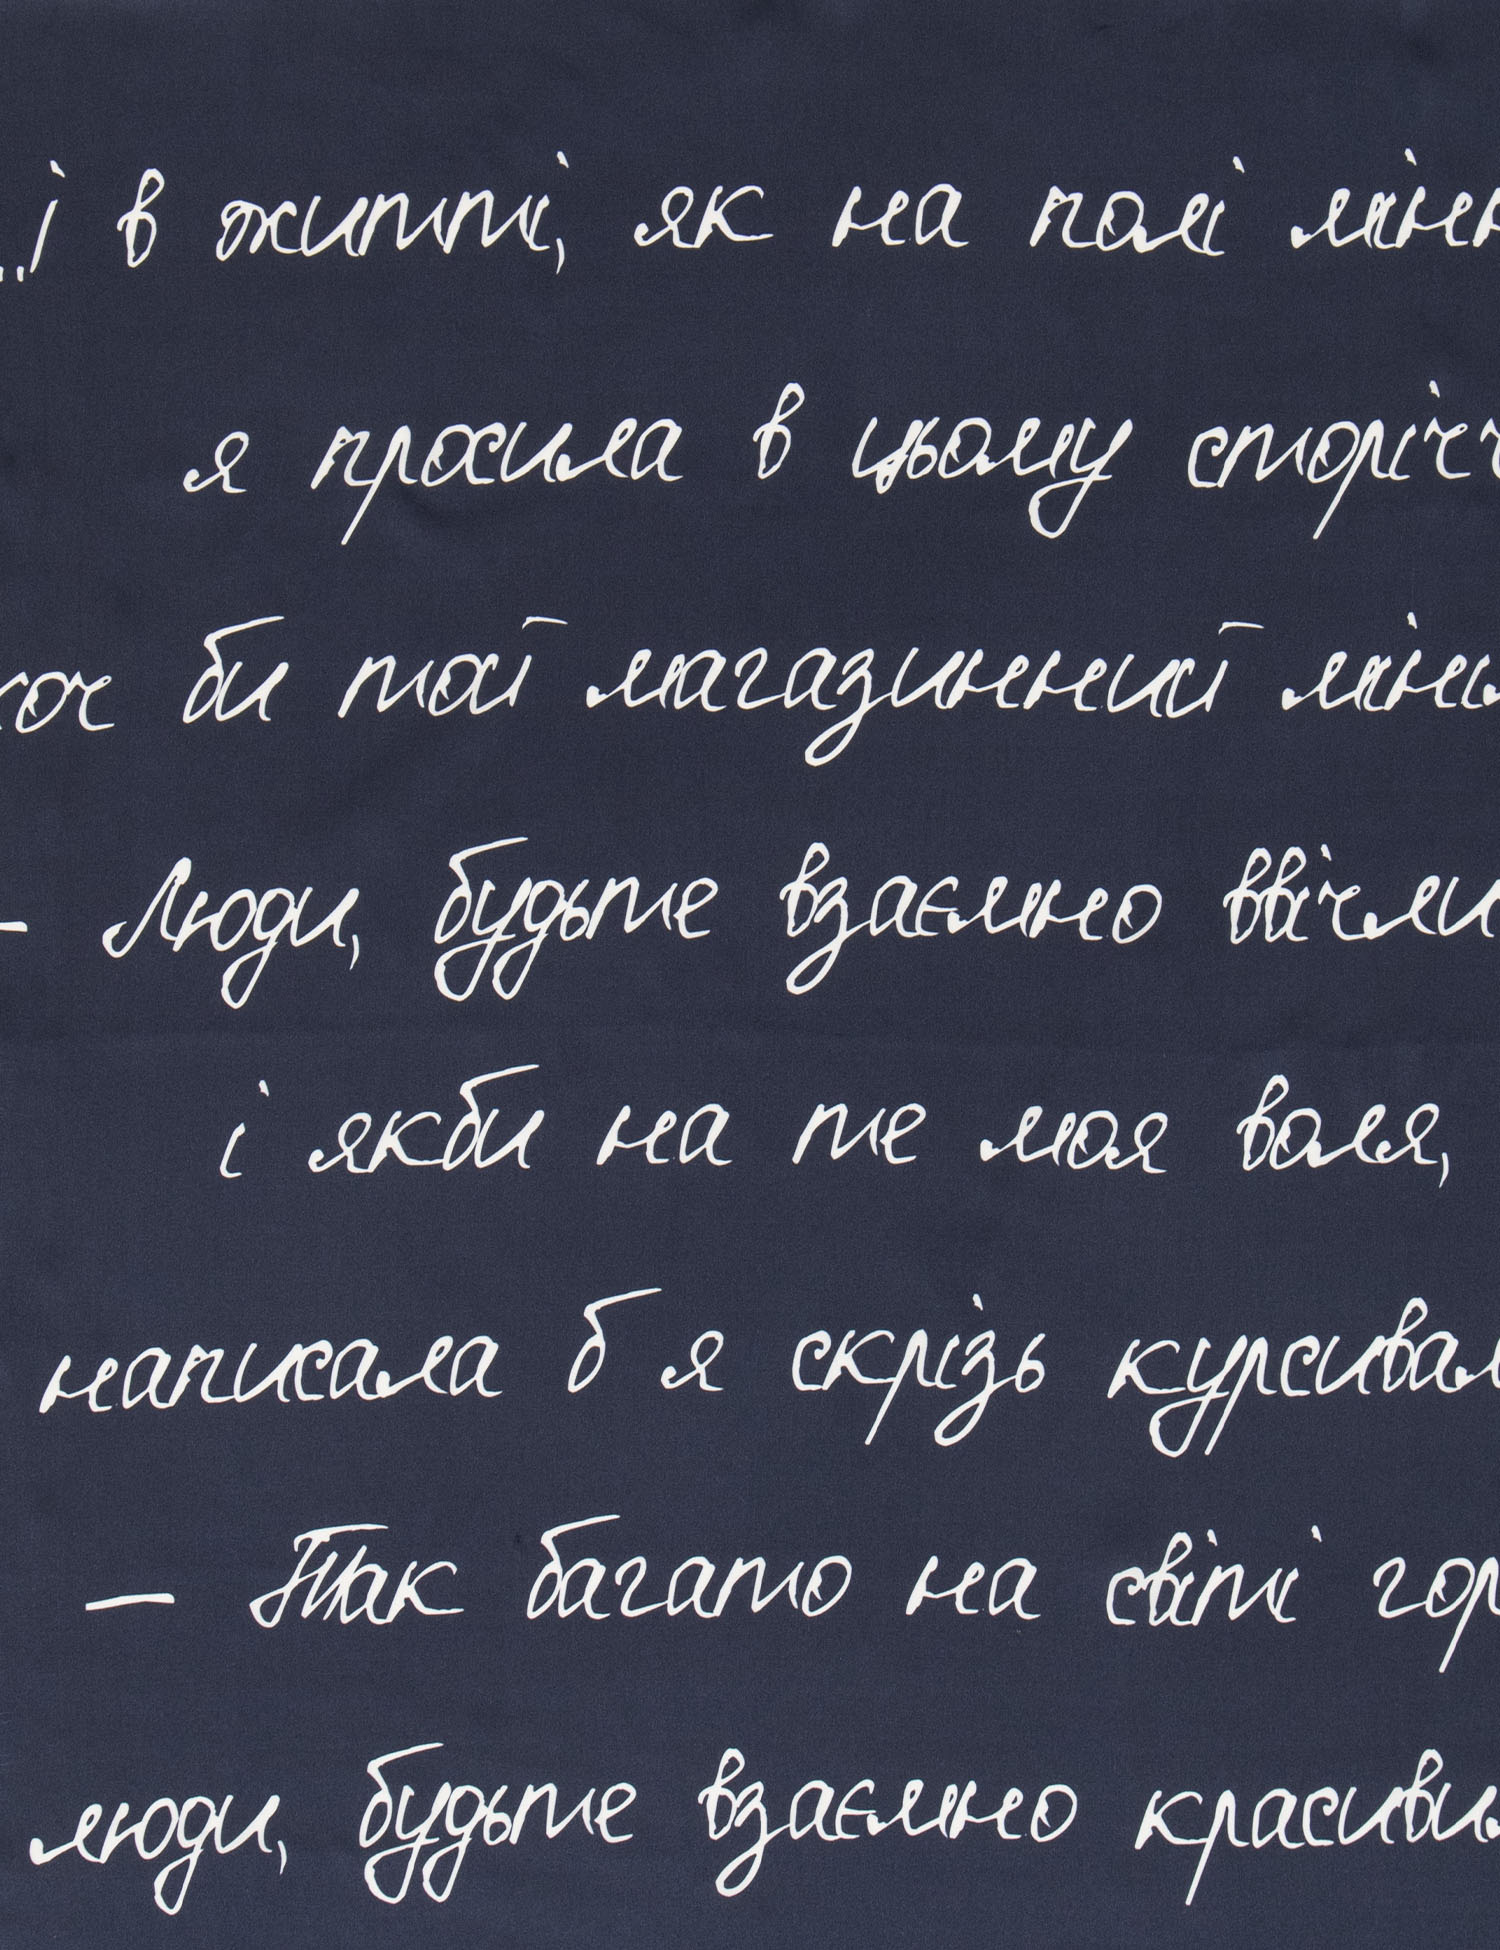 ...і в житті, як на полі мінн
я просила в цьому сторічч
хоч би той магазинний міні
— Люди, будьте взаємно ввічли
і якби на те моя воля,
написала б я скрізь курсивам
— Так багато на світі гор
люди, будьте взаємно красиви